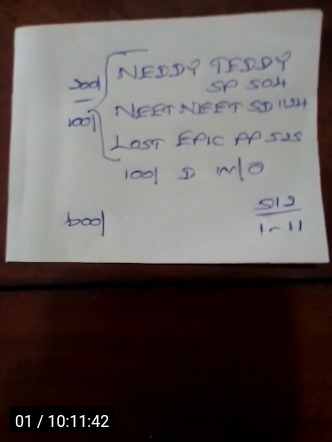 NEDDY TEDDY
SP 504
200/
100/
NEET NEET SD 1124
LOST EPIC PP 525
100/ D W/O
S12
1-11
01 / 10:11:42